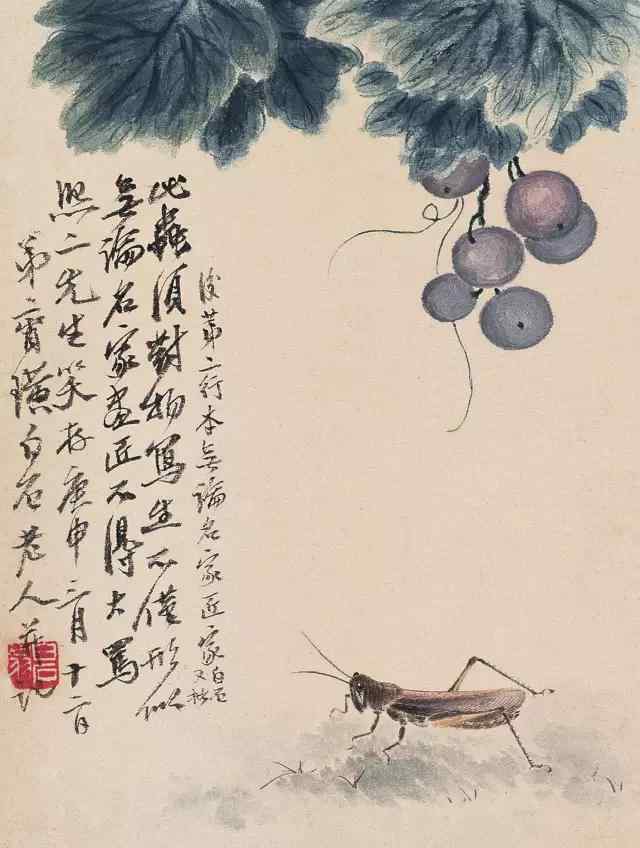 此蟲須對物寫生不僅形似
無論名家畫匠不得大罵
熙二先生笑存庚申三月十二日
弟齊璜白石老人并記
後第二行本無論名家匠家白石又批